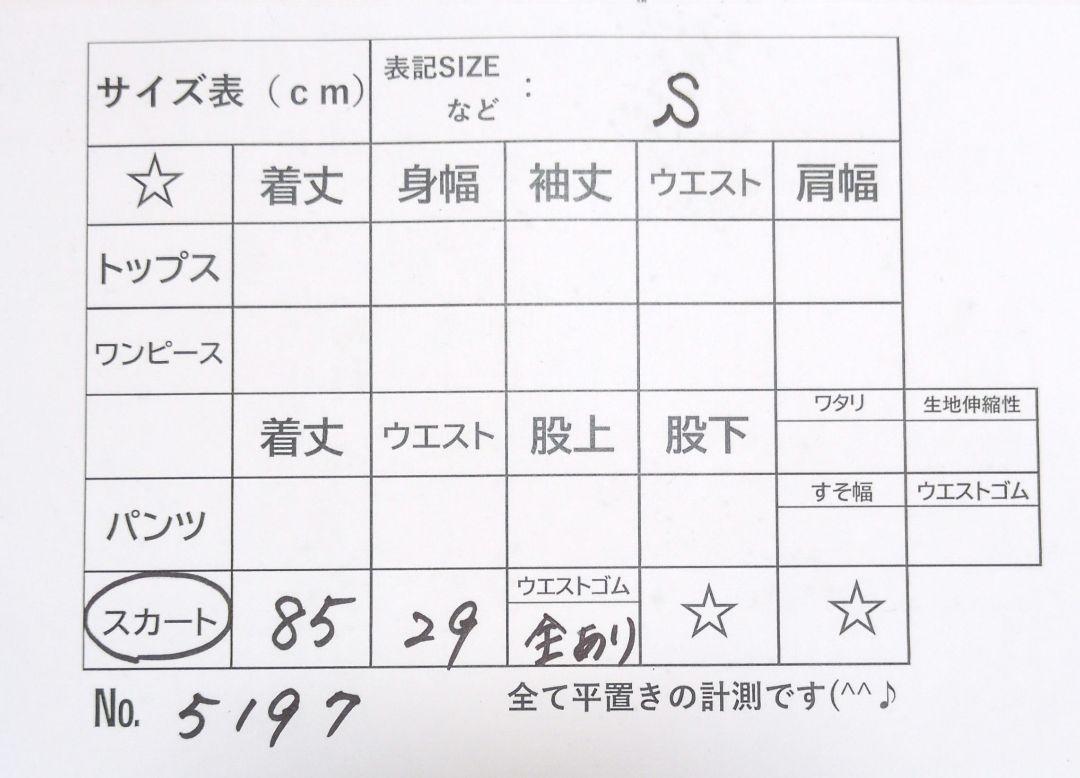 サイズ表（cm） 表記SIZE : S
など
☆ 着丈 身幅 袖丈 ウエスト 肩幅
トップス
ワンピース
ワタリ 生地伸縮性
着丈 ウエスト 股上 股下
すそ幅 ウエストゴム
パンツ
ウエストゴム
スカート 85 29 全あり ☆ ☆
No. 5197 全て平置きの計測です(^^♪